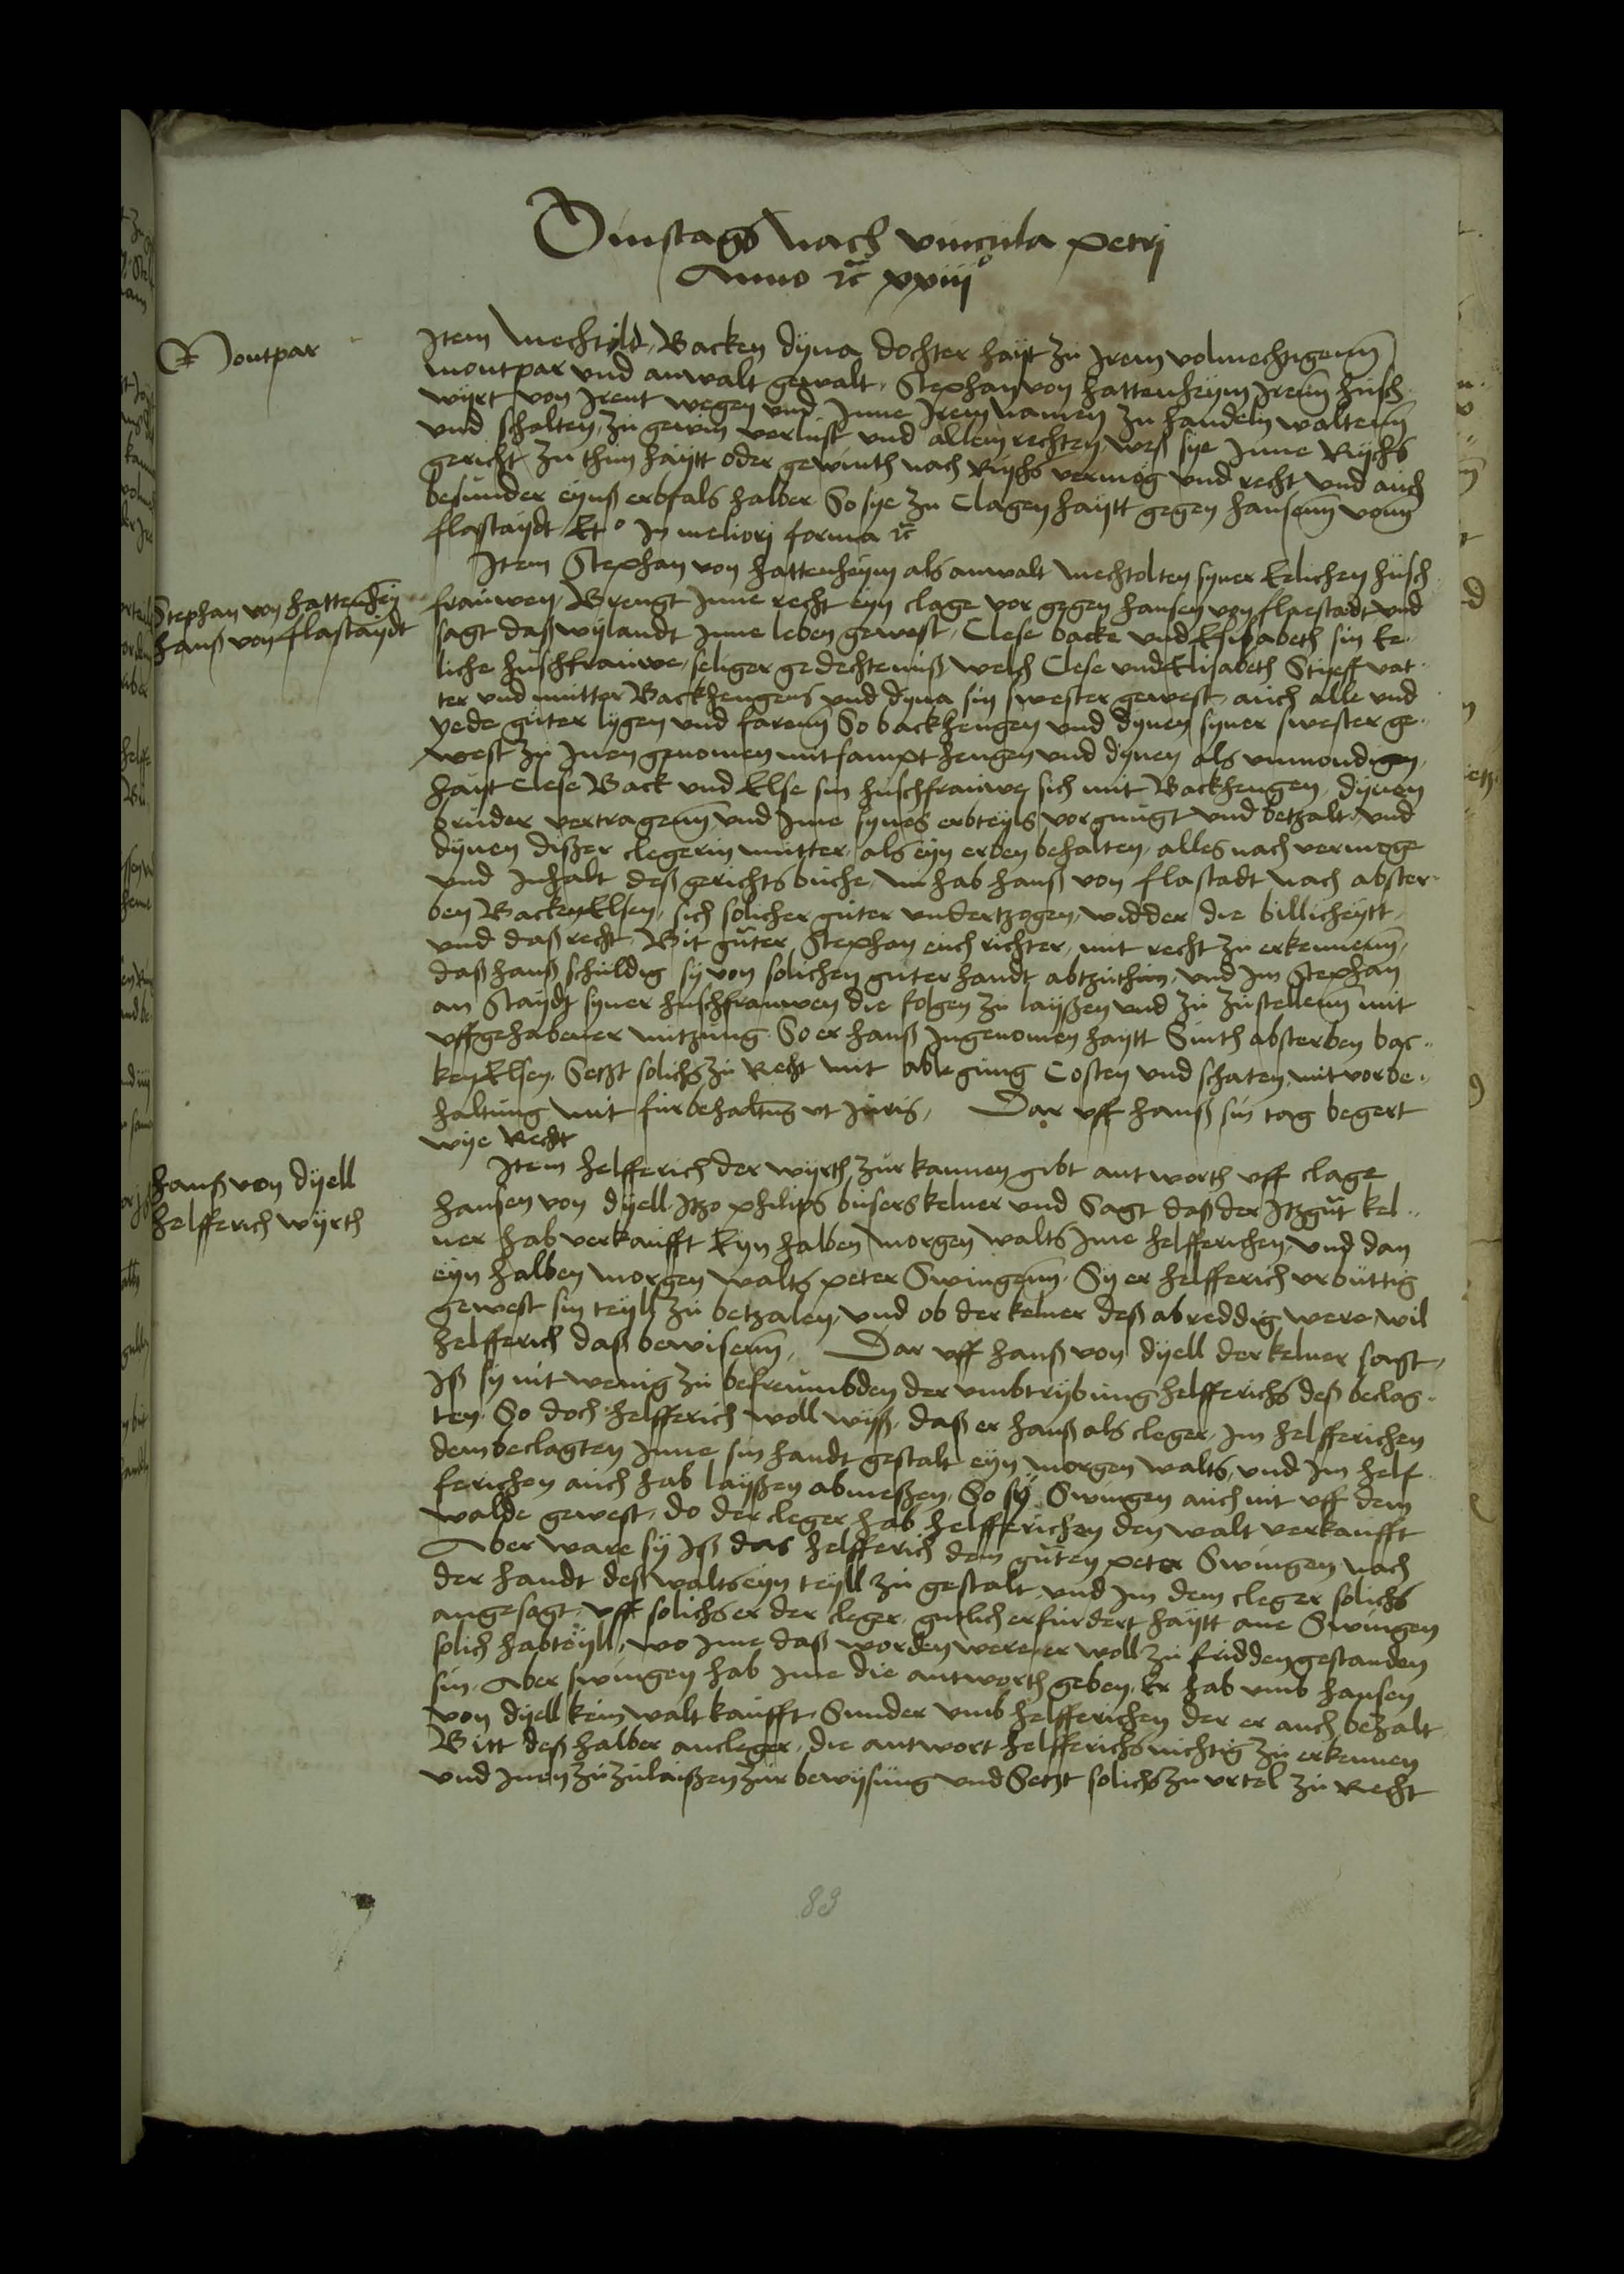 Dinstags nach vincula petrj
Anno ꝛc xxiijº
Montpar
Item Mechtild, Backen dyna dochter hayt zu Jrem volmechtigenn
montpar vnd anwalt gewalt, Stephan von hattenheym Jrenn husch
wyrt von Jrent wegen vnd Jnne Jrem namen zu handeln waltenn
vnd schalten, zu gewin verlust vnd allem rechten, weß sye Jnne Rychs
gericht zu thun haytt oder gewinth nach Rychs vermog vnd recht vnd auch
besunder eynß erbfals halber So sye zu Clagen haytt gegen hansenn vonn
flastaydt Etº Jn meliorj forma ꝛc
Item Stephan von hattenheym als anwalt mechtolten syner Eelichen husch
Stephan von hattenhey
hanß von flastaydt
frauwen, Brengt Jnne recht eyn clage vor gegen hansen von flaestadt vnd
sagt daß wylandt Jnne leben gewest, Clese backe vnd Elisabeth sin Ee
liche huschfrauwe, seliger gedechteniß welch Clese vnd Elisabeth Stieff vat
ter vnd mutter Backhengens vnd dyna sin swester gewest, auch alle vnd
yede guter lygen vnd farenn So backhengen vnd dynen syner swester ge
west zu Jnen genomen mit sampt hengen vnd dynen als vnmondigen,
hayt Clese Back vnd Else sin huschfrauwe sich mit Backhengen, dynen
bruder vertragenn vnd Jme synes erbteyls vorgnugt vnd betzalt vnd
dynen dißer clegerin mutter, als eyn erben behalten, alles nach vermoge
vnd Jnhalt deß gerichts buche, nu hab hanß von flastadt nach abster
ben Backen Elsen, sich solicher guter vndertzogen, widder die billicheytt
vnd daß recht, Bit guter Stephan euch richter, mit recht zu erkennenn,
daß hanß schuldig sy von solichen guter handt abtzuthun, vnd Jm Stephan
an Staydt syner huschfrauwen die folgen zu layßen vnd zu zustellenn mit
vffgehabener nutzung So er hanß Jngenomen haytt Sinth absterben bac
ken Elsen, Setzt solichs zu Recht mit ablegung Costen vnd schaten, mit vorbe
haltung mit furbehaltung vt Juris, Dar vff hanß sin tag begert
wye Recht
hanß von dyell
helfferich wyrth
Item helfferich der wyrth zur kannen gibt antworth vff clage
hansen von dyell, Jtzo philips busers kelner vnd Sagt daß der Jtzgut kel
ner hab verkaufft Eyn halben morgen walts Jme helfferichen, vnd dan
eyn halben morgen walts peter Swingenn, Sy er helfferich vrbuttig
gewest sin teyll zu betzalen, vnd ob der kelner deß abreddig were, wil
helfferich daß bewisenn, Dar vff hanß von dyell der kelner sagt,
Jß sy nit wenig zu befreumbden der vmbtrybung helfferichs deß beclag
ten, So doch helfferich woll wyß, daß er hanß als cleger, Jm helfferichen
dem beclagten Jnne sin handt gestalt eyn morgen walts, vnd Jm helf
ferichen auch hab layßen abmeßen, So sy Swingen auch nit vff dem
walde gewest, do der cleger hab helfferichen den walt verkaufft
Aber ware sy Jß das helfferich dem guten peter Swingen nach
der handt deß walts eyn teyll zu gestalt vnd Jm dem cleger solichs
angesagt, vff solichs er der cleger, gutlich erfurdert haytt ane Swingen
solich habteyll, wo Jme daß worden were, er woll zu fridden gestanden
sin, Aber swingen hab Jme die antworth geben, Er hab vmb hansen
von dyell kein walt kaufft, Sunder vmb helfferichen der er auch bezalt
Bitt deß halber ancleger, die antwort helfferichs nichtig zu erkennen
vnd Jnen zu zulaußen zur bewysung vnd Setzt solichs zu vrtel zu Recht
83